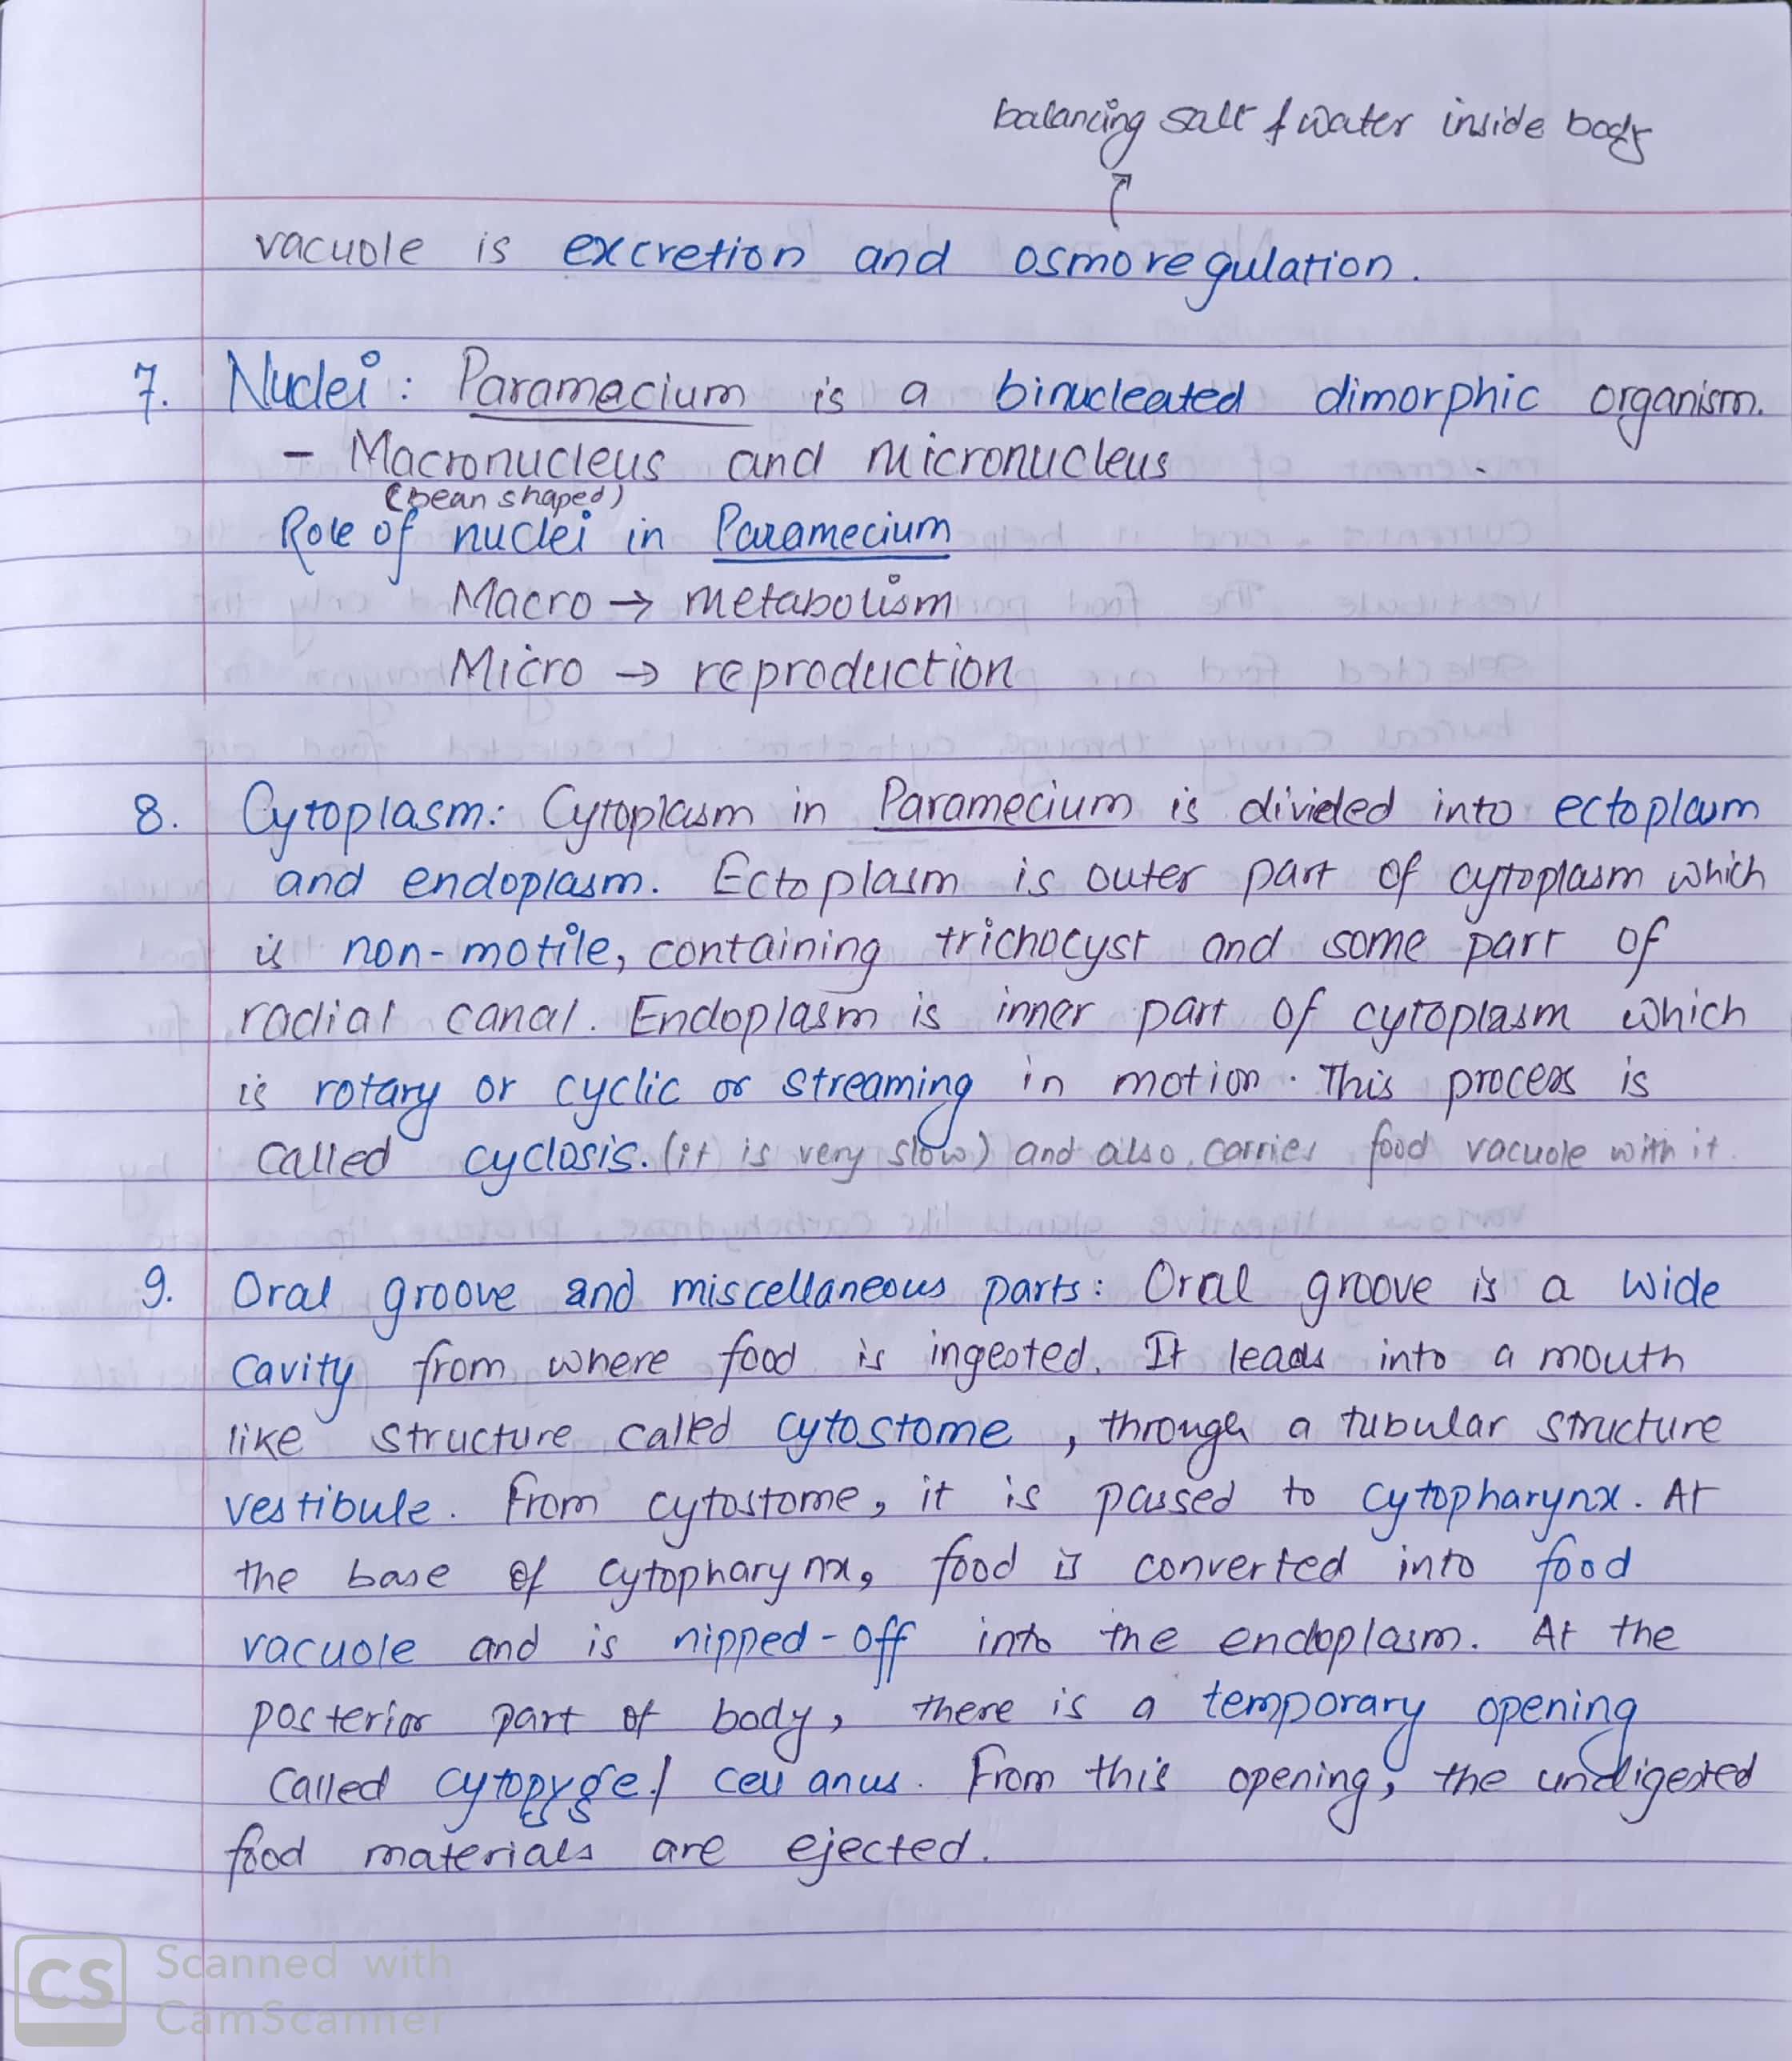 balancing salt & water inside body
vacuole is excretion and osmoregulation.
7. Nuclei: Paramecium is a binucleated dimorphic organism.
- Macronucleus and micronucleus
(bean shaped)
Role of nuclei in Paramecium
Macro → metabolism
Micro → reproduction
8. Cytoplasm: Cytoplasm in Paramecium is divided into ectoplasm
and endoplasm. Ectoplasm is outer part of cytoplasm which
is non-motile, containing trichocyst and some part of
radial canal. Endoplasm is inner part of cytoplasm which
is rotary or cyclic or streaming in motion. This process is
called cyclosis. (it is very slow) and also carries food vacuole with it.
9. Oral groove and miscellaneous parts: Oral groove is a wide
cavity from where food is ingested. It leads into a mouth
like structure called cytostome, through a tubular structure
vestibule. From cytostome, it is passed to cytopharynx. At
the base of cytopharynx, food is converted into food
vacuole and is nipped-off into the endoplasm. At the
posterior part of body, there is a temporary opening
called cytopyge/ cell anus. From this opening, the undigested
food materials are ejected.
CS Scanned with
CamScanner